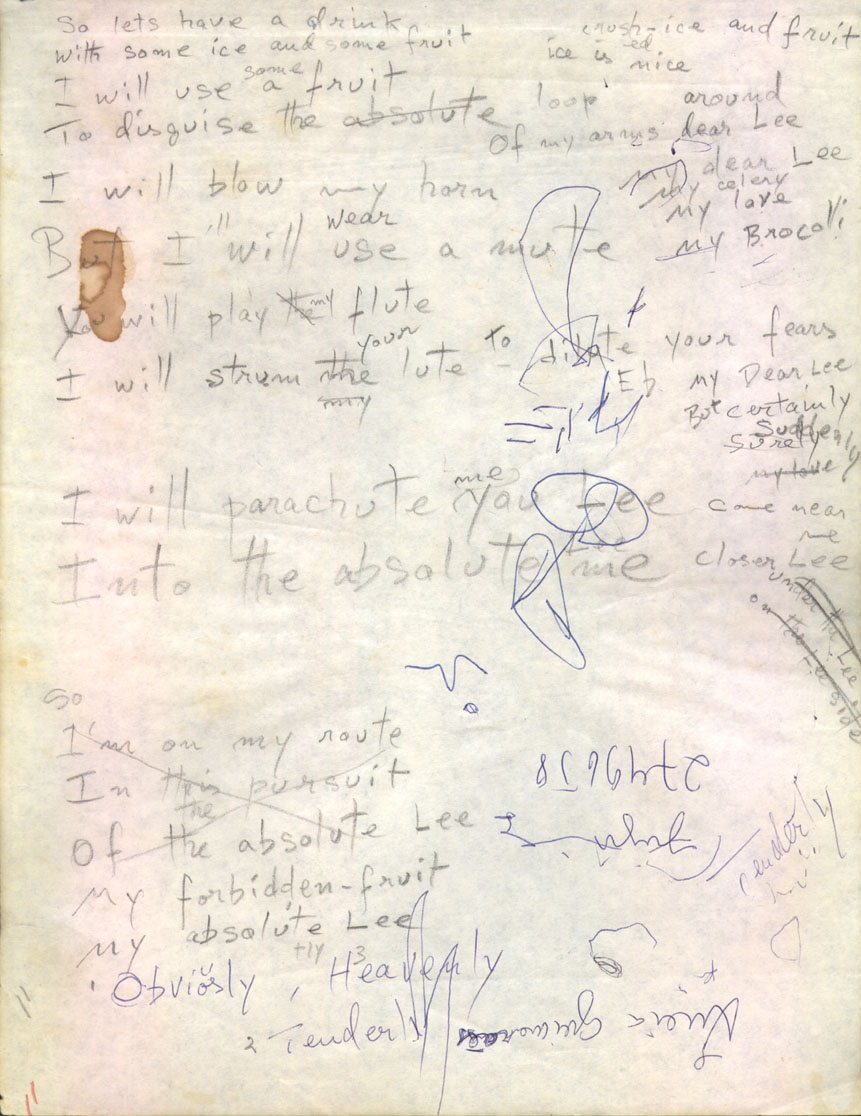 So lets have a drink
with some ice and some fruit
crush-ice and fruit
ice is ed nice
I will use some a fruit
To disguise the absolute
loop around
Of my arms dear Lee
my dear Lee
my celery
my love
my Brocolli
I will blow my horn
But I 'll will wear use a mute
You will play the my flute
I will strum the my your lute to dilate your fears
Eb
my Dear Lee
But certainly
Suddenly
Surely
my love
I will parachute me you Lee
come near me
Into the absolute me
closer Lee
under the Lee
on the Lee side
So
I'm on my route
In this the pursuit
Of the absolute Lee
My forbidden-fruit
My absolute Lee
+ly
Obviosly , 3 Heavenly
2 Tenderly
2749658
Tenderly